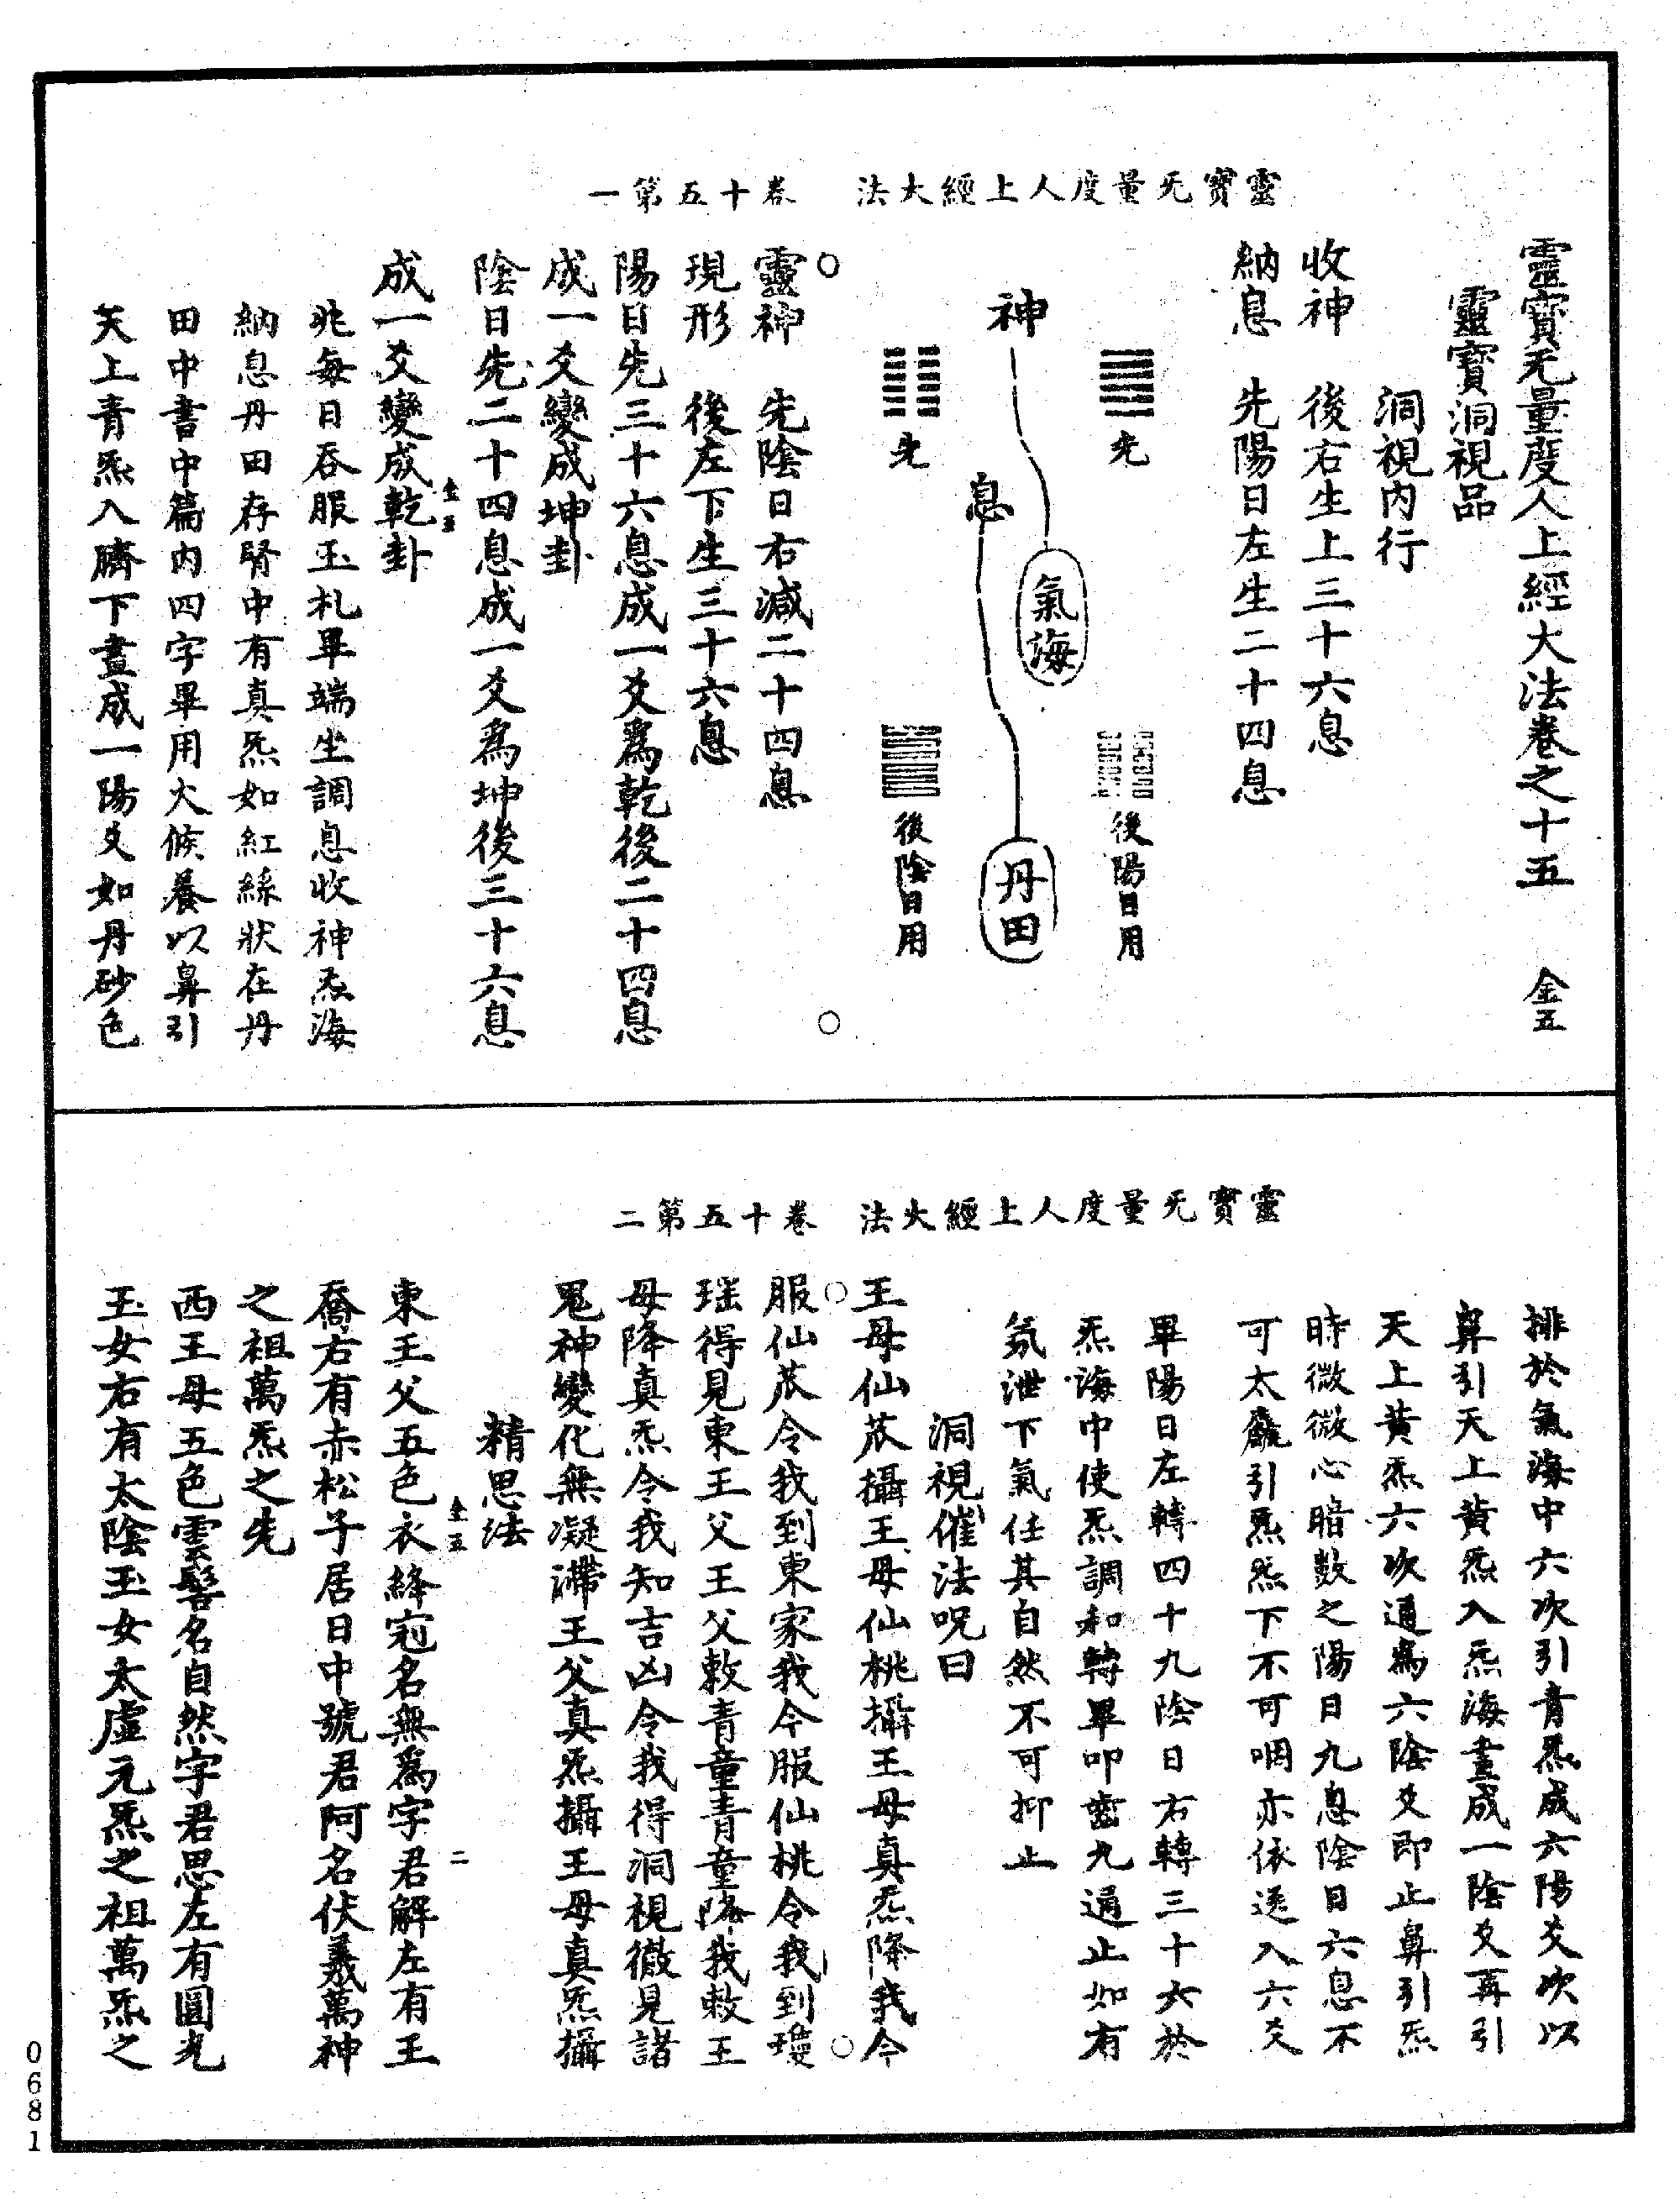 靈寶无量度人上經大法　卷十五第一
靈寶无量度人上經大法卷之十五　金五
靈寶洞視品
洞視內行
收神　後右生上三十六息
納息　先陽日左生二十四息
先
後陽日用
神
氣海
息
丹田
先
後陰日用
靈神　先陰日右減二十四息
現形　後左下生三十六息
陽日先三十六息成一爻爲乾後二十四息
成一爻變成坤卦
陰日先二十四息成一爻爲坤後三十六息
金五
成一爻變成乾卦
兆每日吞服玉札畢端坐調息收神炁海
納息丹田存腎中有真炁如紅絲狀在丹
田中書中篇內四字畢用火候養以鼻引
天上青炁入臍下畫成一陽爻如丹砂色
靈寶无量度人上經大法　卷十五第二
排於氣海中六次引青炁成六陽爻次以
鼻引天上黃炁入炁海畫成一陰爻再引
天上黃炁六次通爲六陰爻即止鼻引炁
時微微心暗數之陽日九息陰日六息不
可太麤引炁炁下不可咽亦依送入六爻
畢陽日左轉四十九陰日右轉三十六於
炁海中使炁調和轉畢叩齒九通止如有
氛泄下氣任其自然不可抑止
洞視催法呪曰
王母仙苽攝王母仙桃攝王母真炁降我今
服仙苽令我到東家我今服仙桃令我到瓊
瑤得見東王父王父敕青童青童降我敕王
母降真炁令我知吉凶令我得洞視徹見諸
鬼神變化無凝滯王父真炁攝王母真炁攝
精思法
金五　二
東王父五色衣絳冠名無爲字君解左有王
喬右有赤松子居日中號君阿名伏羲萬神
之祖萬炁之先
西王母五色雲髻名自然字君思左有圓光
玉女右有太陰玉女太虛元炁之祖萬炁之
0681